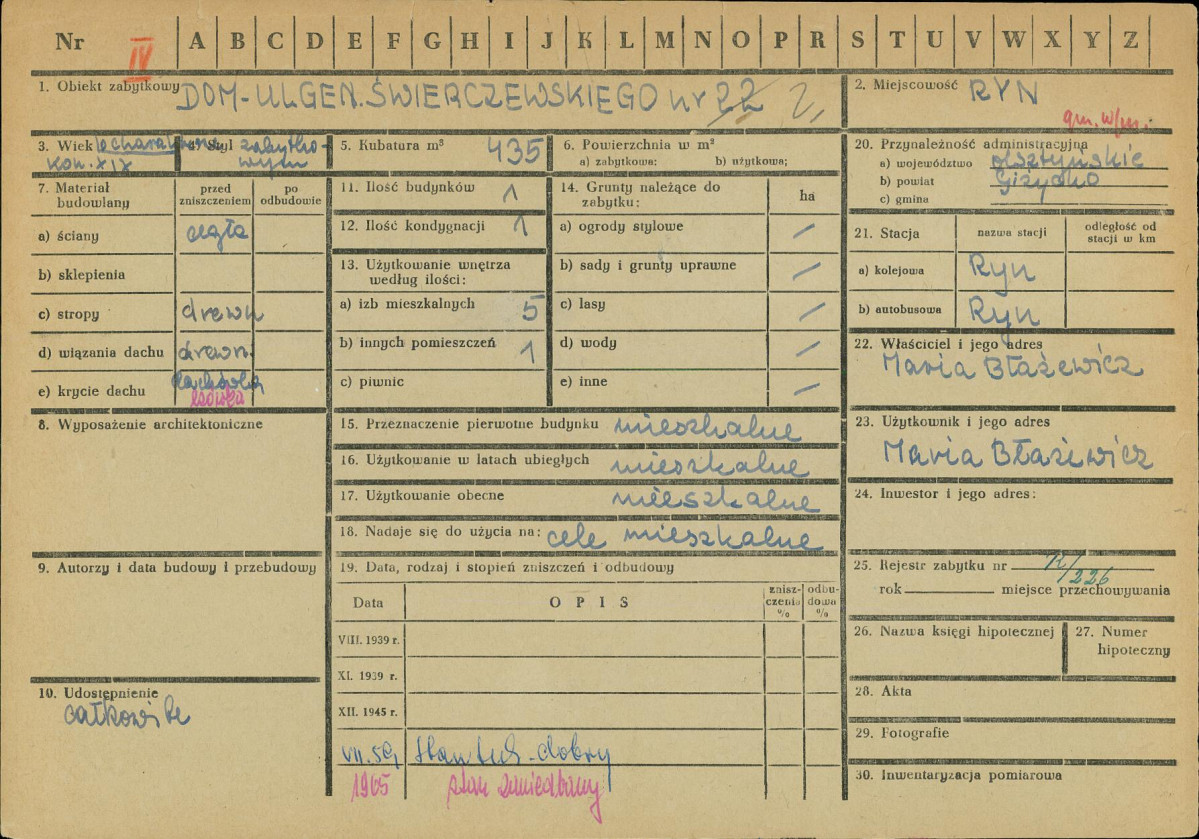 Nr IV A B C D E F G H I J K L M N O P R S T U V W X Y Z
1. Obiekt zabytkowy DOM-UL GEN. ŚWIERCZEWSKIEGO nr 22 2,
2. Miejscowość RYN
gm. w/m.
3. Wiek o charakterze
kon. XIX
4. Styl zabytko-
wym
5. Kubatura m³ 435
6. Powierzchnia w m²
a) zabytkowa: b) użytkowa;
7. Materiał budowlany
przed zniszczeniem
po odbudowie
a) ściany cegła
b) sklepienia
c) stropy drewn
d) wiązania dachu drewn.
e) krycie dachu dachówka
8. Wyposażenie architektoniczne
9. Autorzy i data budowy i przebudowy
10. Udostępnienie
całkowite
11. Ilość budynków 1
12. Ilość kondygnacji 1
13. Użytkowanie wnętrza
według ilości:
a) izb mieszkalnych 5
b) innych pomieszczeń 1
c) piwnic
14. Grunty należące do
zabytku: ha
a) ogrody stylowe /
b) sady i grunty uprawne /
c) lasy /
d) wody /
e) inne /
15. Przeznaczenie pierwotne budynku mieszkalne
16. Użytkowanie w latach ubiegłych mieszkalne
17. Użytkowanie obecne mieszkalne
18. Nadaje się do użycia na: cele mieszkalne
19. Data, rodzaj i stopień zniszczeń i odbudowy
Data OPIS znisz-czenia % odbu-dowa %
VIII. 1939 r.
XI. 1939 r.
XII. 1945 r.
VII. 59 stan tech. dobry
1965 stan zaniedbany
20. Przynależność administracyjna
a) województwo olsztyńskie
b) powiat Giżycko
c) gmina
21. Stacja nazwa stacji odległość od
stacji w km
a) kolejowa Ryn
b) autobusowa Ryn
22. Właściciel i jego adres
Maria Błażewicz
23. Użytkownik i jego adres
Maria Błażewicz
24. Inwestor i jego adres:
25. Rejestr zabytku nr /226
rok miejsce przechowywania
26. Nazwa księgi hipotecznej
27. Numer
hipoteczny
28. Akta
29. Fotografie
30. Inwentaryzacja pomiarowa